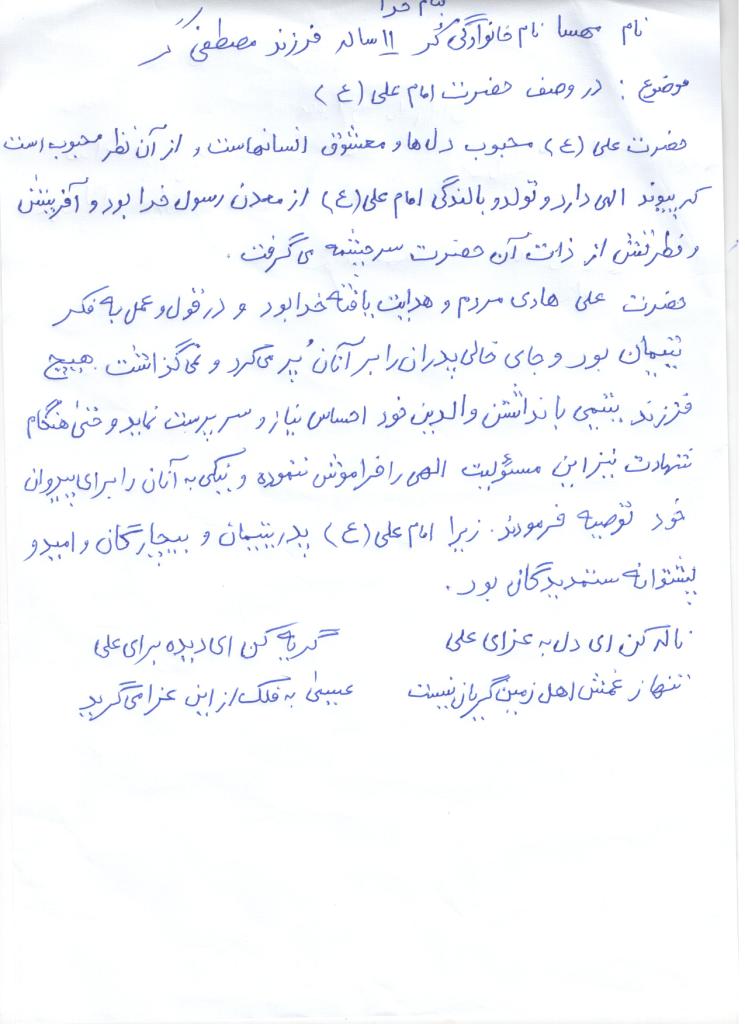 بنام خدا
نام مهسا نام خانوادگی گر ۱۱ ساله فرزند مصطفی گر
موضوع : در وصف حضرت امام علی (ع)
حضرت علی (ع) محبوب دل‌ها و معشوق انسانهاست و از آن نظر محبوب است
که پیوند الهی دارد و تولد و بالندگی امام علی (ع) از معدن رسول خدا بود و آفرینش
و فطرتش از ذات آن حضرت سرچشمه می گرفت .
حضرت علی هادی مردم و هدایت یافته خدا بود و در قول و عمل به فکر
یتیمان بود و جای خالی پدران را بر آنان پُر می کرد و نمی گذاشت هیچ
فرزند یتیمی با نداشتن والدین خود احساس نیاز و سرپرست نماید و حتی هنگام
شهادت نیز این مسئولیت الهی را فراموش ننموده و نیکی به آنان را برای پیروان
خود توصیه فرمودند . زیرا امام علی (ع) پدر یتیمان و بیچارگان و امید و
پشتوانه ستمدیدگان بود .
ناله کن ای دل به عزای علی گریه کن ای دیده برای علی
تنها ز غمش اهل زمین گریان نیست عیسی به فلک از این عزا می گرید